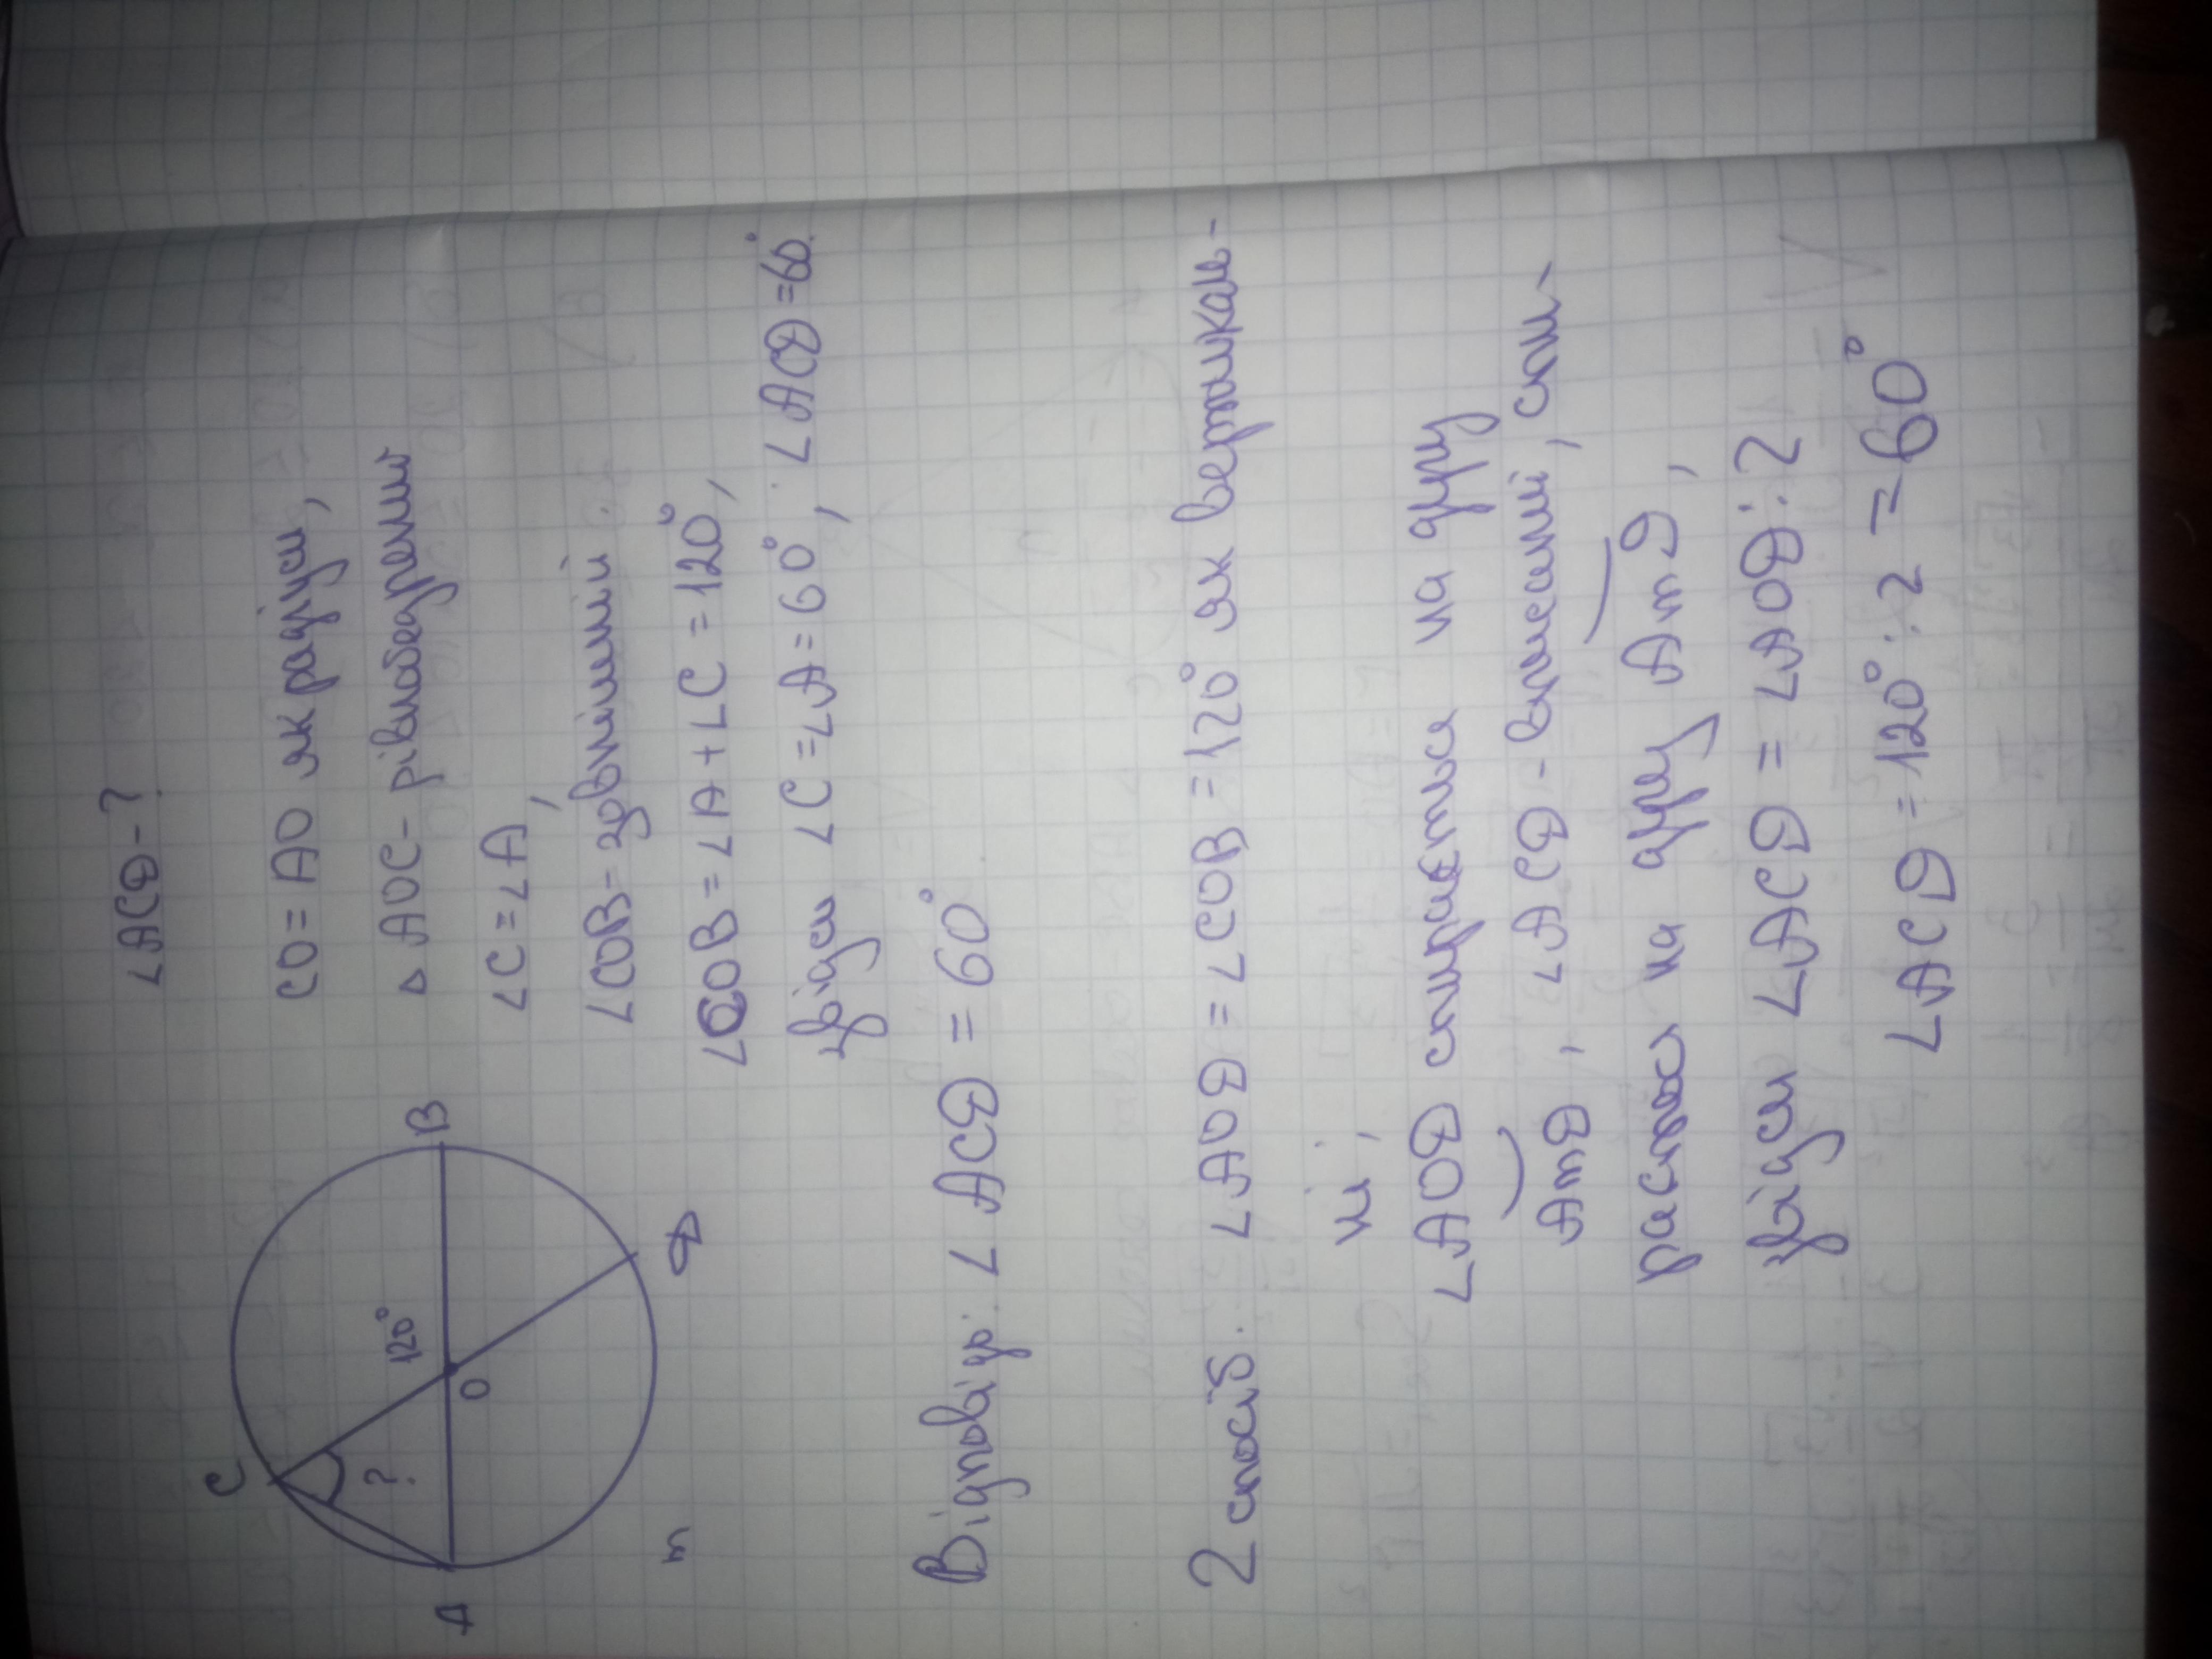 ∠ACD-?
C
120°
?
A
O
B
m
D
CO = AO як радіуси,
△ AOC - рівнобедрений
∠C = ∠A,
∠COB - зовнішній
∠COB = ∠A + ∠C = 120°,
звідси ∠C = ∠A = 60°, ∠ACD = 60°.
Відповідь: ∠ ACD = 60°
2 спосіб. ∠AOD = ∠COB = 120° як вертикаль-
ні,
∠AOD спирається на дугу
AmD, ∠ACD - вписаний, спи-
рається на дугу AmD,
звідси ∠ACD = ∠AOD : 2
∠ACD = 120° : 2 = 60°